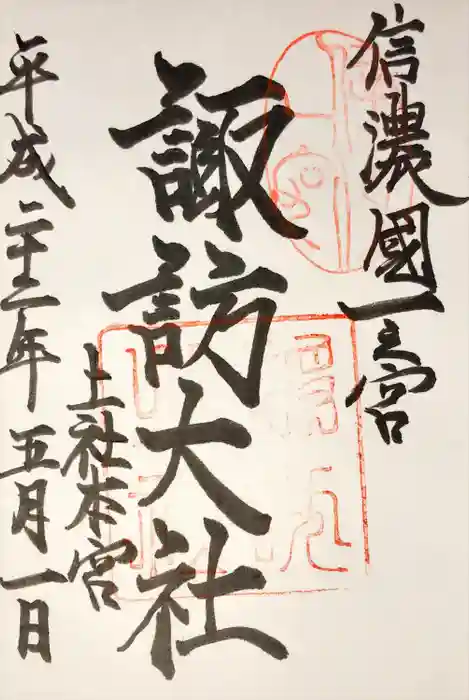 信濃國一之宮
諏訪大社
上社本宮
平成二十二年五月一日